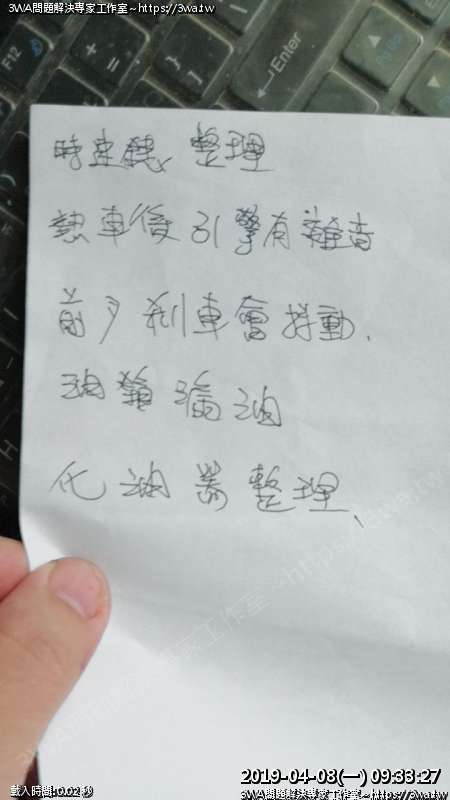 3WA問題解決專家工作室~https://3wa.tw
3WA問題解決專家工作室~https://3wa.tw
F12
Enter
PgUp
PgDn
End
時速錶 整理
熱車後引擎有雜音
前夕剎車會抖動.
油箱漏油
化油器整理、
載入時間:0.02 秒
2019-04-08(一) 09:33:27
3WA問題解決專家工作室~https://3wa.tw